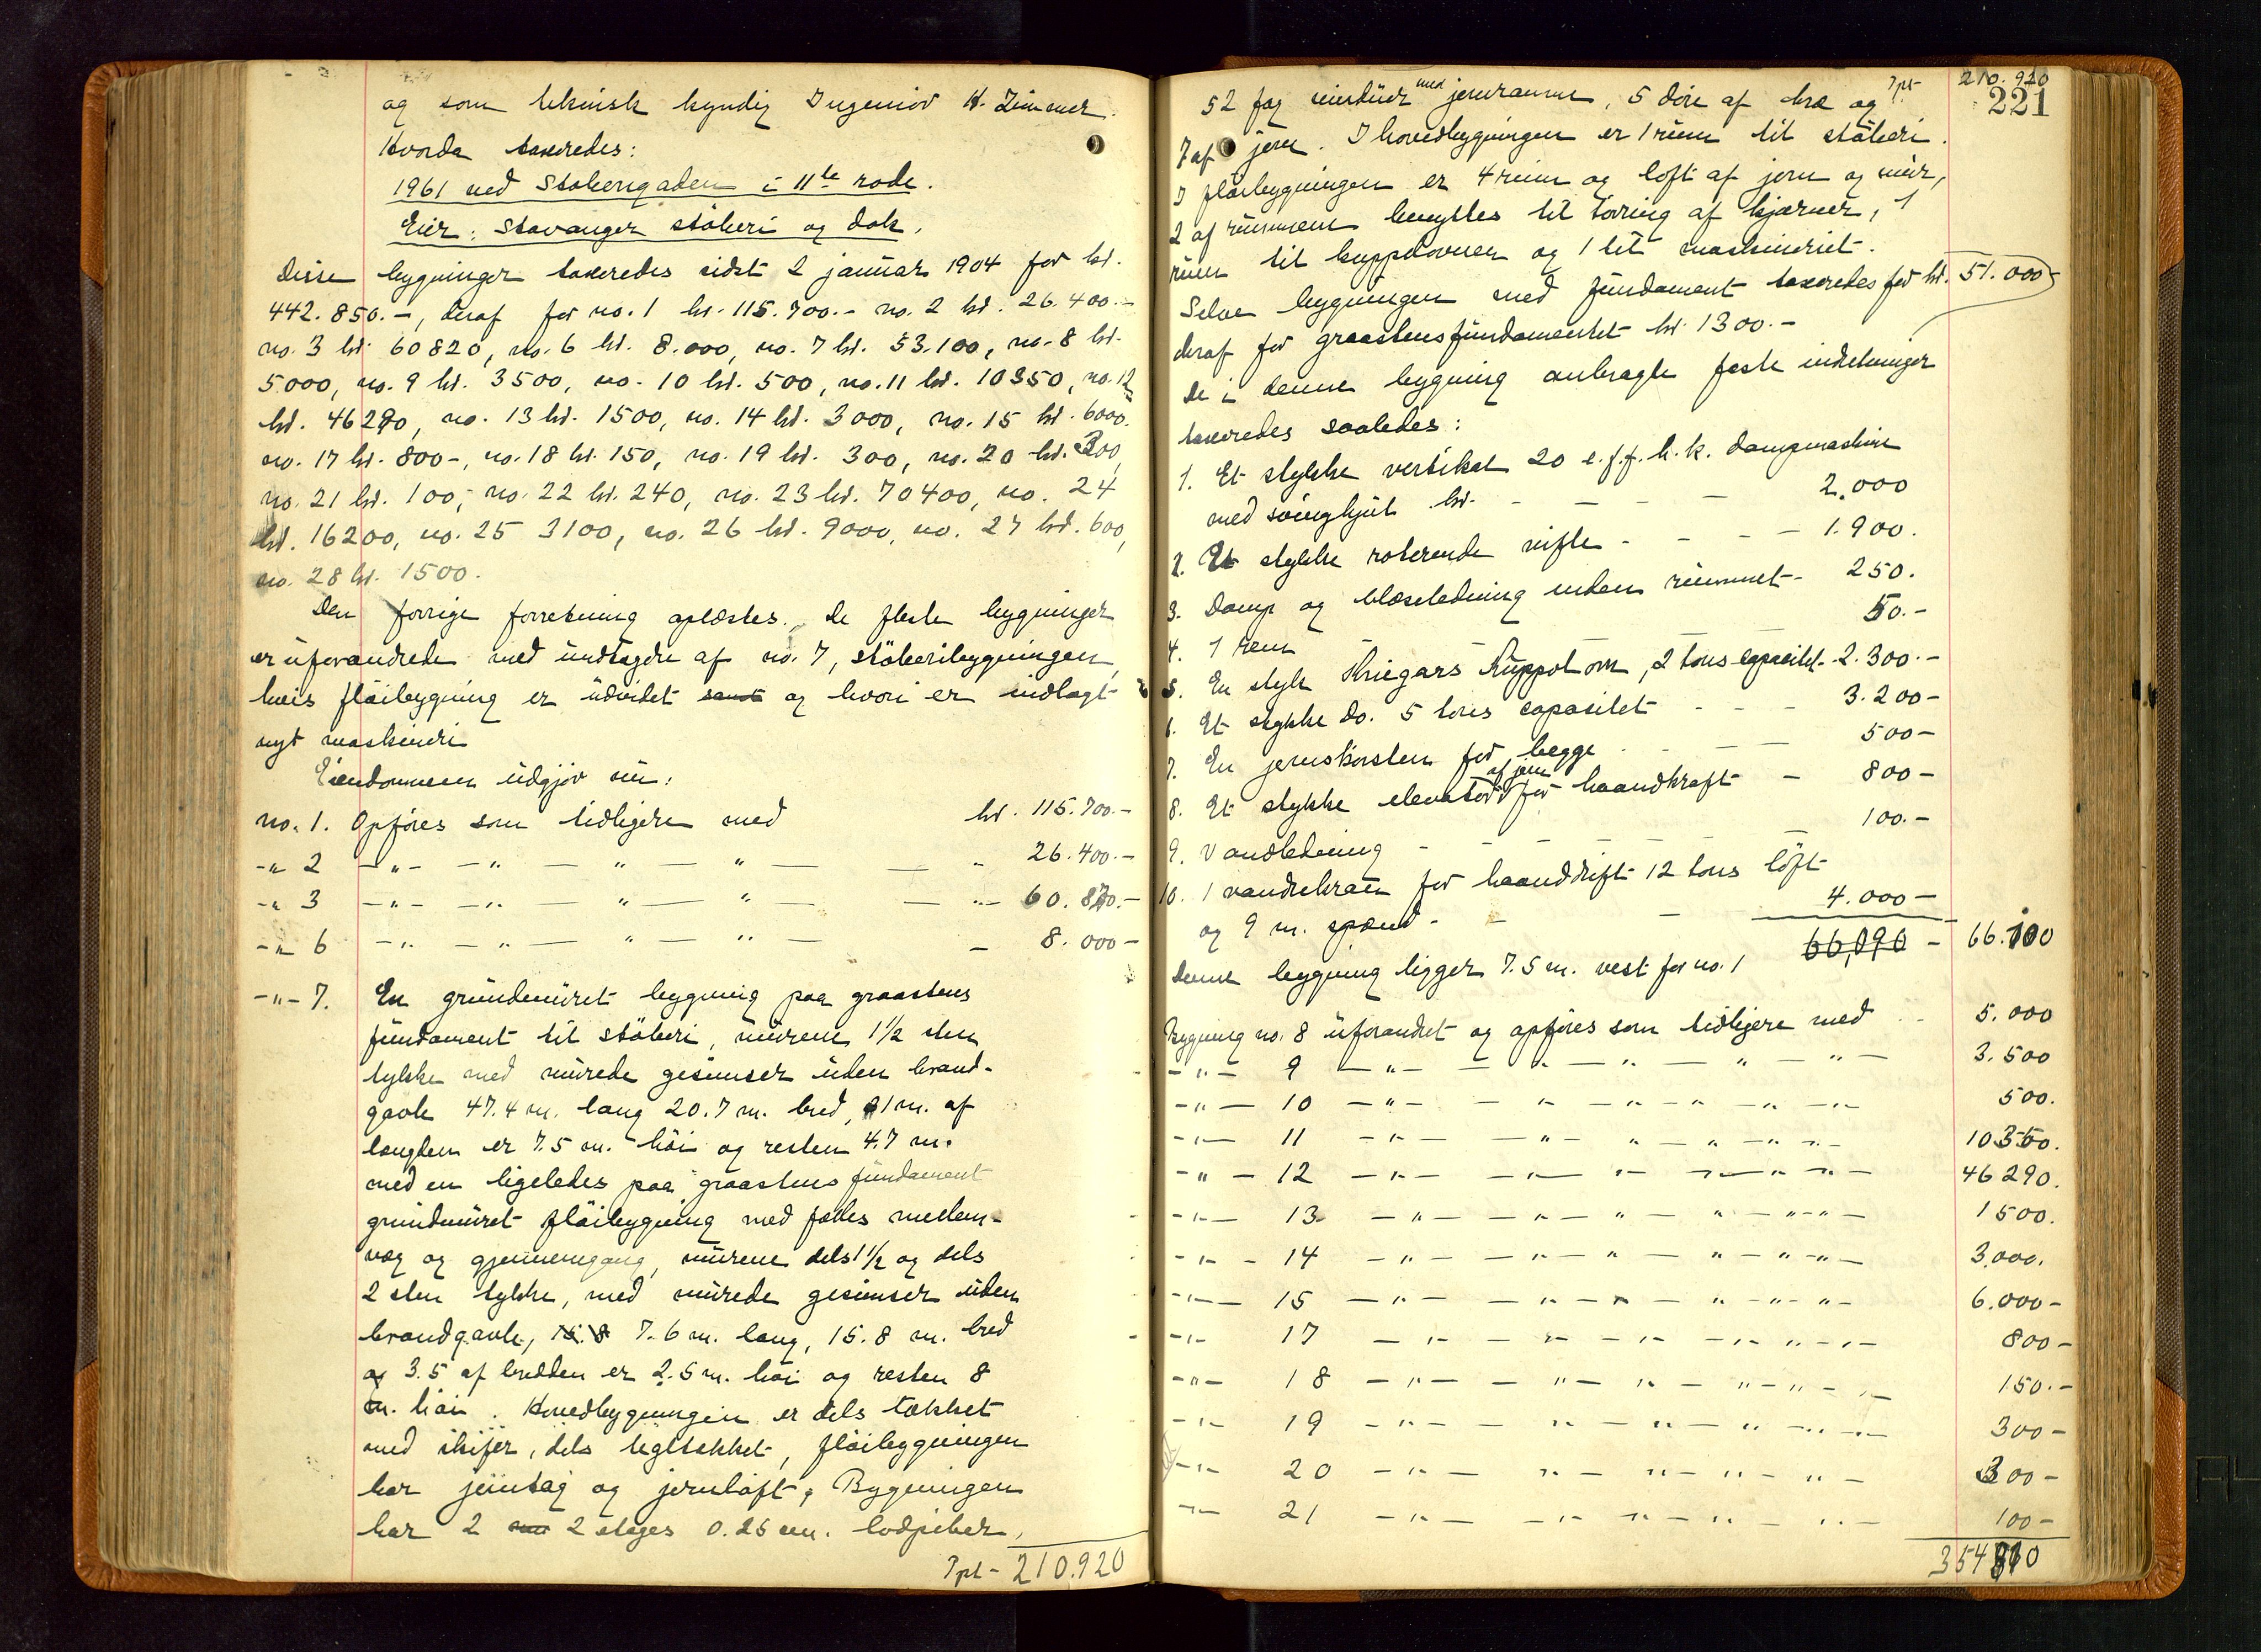 og som teknisk kyndig Ingeniör H. Zimmer.
Hvorda taxeredes:
1961 ved Støberigaden i 11te rode.
Eier: Stavanger stöberi og dok.
Disse bygninger taxeredes sidst 2 januar 1904 for kr.
442.850.-, deraf for no. 1 kr. 115.700.- no. 2 kr. 26.400.-
no. 3 kr. 60820, no. 6 kr. 8.000, no. 7 kr. 53.100, no. 8 kr.
5000, no. 9 kr. 3500, no. 10 kr. 500, no. 11 kr. 10350, no. 12
kr. 46290, no. 13 kr. 1500, no. 14 kr. 3000, no. 15 kr. 6000.
no. 17 kr. 800-, no. 18 kr. 150, no. 19 kr. 300, no. 20 kr. 300,
no. 21 kr. 100, no. 22 kr. 240, no. 23 kr. 70400, no. 24
kr. 16200, no. 25 3100, no. 26 kr. 9000, no. 27 kr. 600,
no. 28 kr. 1500.
Den forrige forretning oplæstes. De fleste bygninger
er uforandrede med undtagelse af no. 7, stöberibygningen,
hvis flöibygning er udvidet samt og hvori er indlagt
nyt maskineri
Eiendommen udgjör nu:
no. 1. Opföres som tidligere med kr. 115.700.-
-"- 2 -"- -"- " " 26.400.-
-"- 3 -"- -"- " " 60.820.-
-"- 6 -"- -"- " " 8.000-
-"- 7. En grundmuret bygning paa graastens
fundament til stöberi, murene 1½ sten
tykke med murede gesimser uden brand-
gavle 47.4 m. lang 20.7 m. bred, 21 m. af
længden er 7.5 m. höi og resten 4.7 m.
med en ligeledes paa graastens fundament
grundmuret flöibygning med fælles mellem-
væg og gjennemgang, murene dels 1½ og dels
2 sten tykke, med murede gesimser uden
brandgavle, 15.8 7.6 m. lang, 15.8 m. bred
og 3.5 af bredden er 2.5 m. höi og resten 8
m. höi. Hovedbygningen er dels tækket
med skifer, dels tegltækket, flöibygningen
har jerntag og jernloft. Bygningen
har 2 2 etages 0.25 cm. lodpiber,
Tpt- 210.920
Tpt- 210.920
221
52 fag vinduer med jernramme, 5 döre af træ og
7 af jern. I hovedbygningen er 1 rum til stöberi.
I flöibygningen er 4 rum og loft af jern og mur,
2 af rummene benyttes til törring af kjærner, 1
rum til kuppelovnen og 1 til maskineriet.
Selve bygningen med fundament taxeredes for kr. 51.000-
deraf for graastensfundamentet kr. 1300.-
De i denne bygning anbragte faste indretninger
taxeredes saaledes:
1. Et stykke vertikal 20 e.f.f. h.k. dampmaskine
med svinghjul kr. - - - - 2.000
2. Et stykke roterende vifte - - - - 1.900.
3. Damp og blæseledning inden rummet - 250.
4. 1 rem 50.-
5. En stykk Kriegars Kuppolovn, 2 tons capacitet - 2.300.-
6. Et stykke do. 5 tons capacitet - - - 3.200-
7. En jernskorsten for begge - - - 500-
8. Et stykke elevator af jern for haandkraft - 800-
9. Vandledning - - - - 100.-
10. 1 vandrekran for haanddrift 12 tons löft
og 9 m. spænd - - - 4.000-
66,090 - 66.100
Denne bygning ligger 7.5 m. vest for no. 1
Bygning no. 8 uforandret og opföres som tidligere med 5.000
-"- 9 -"- -"- -"- " 3.500
-"- 10 -"- -"- -"- " 500.
-"- 11 -"- -"- " " 10350.
-"- 12 -"- -"- " " 46290.
-"- 13 -"- -"- " " 1500.
-"- 14 -"- -"- " " 3.000.
-"- 15 -"- -"- " " 6.000-
-"- 17 -"- -"- " " 800-
-"- 18 -"- -"- " " 150.-
-"- 19 -"- -"- " " 300-
-"- 20 -"- -"- " " 300-
-"- 21 -"- -"- " " 100-
354810